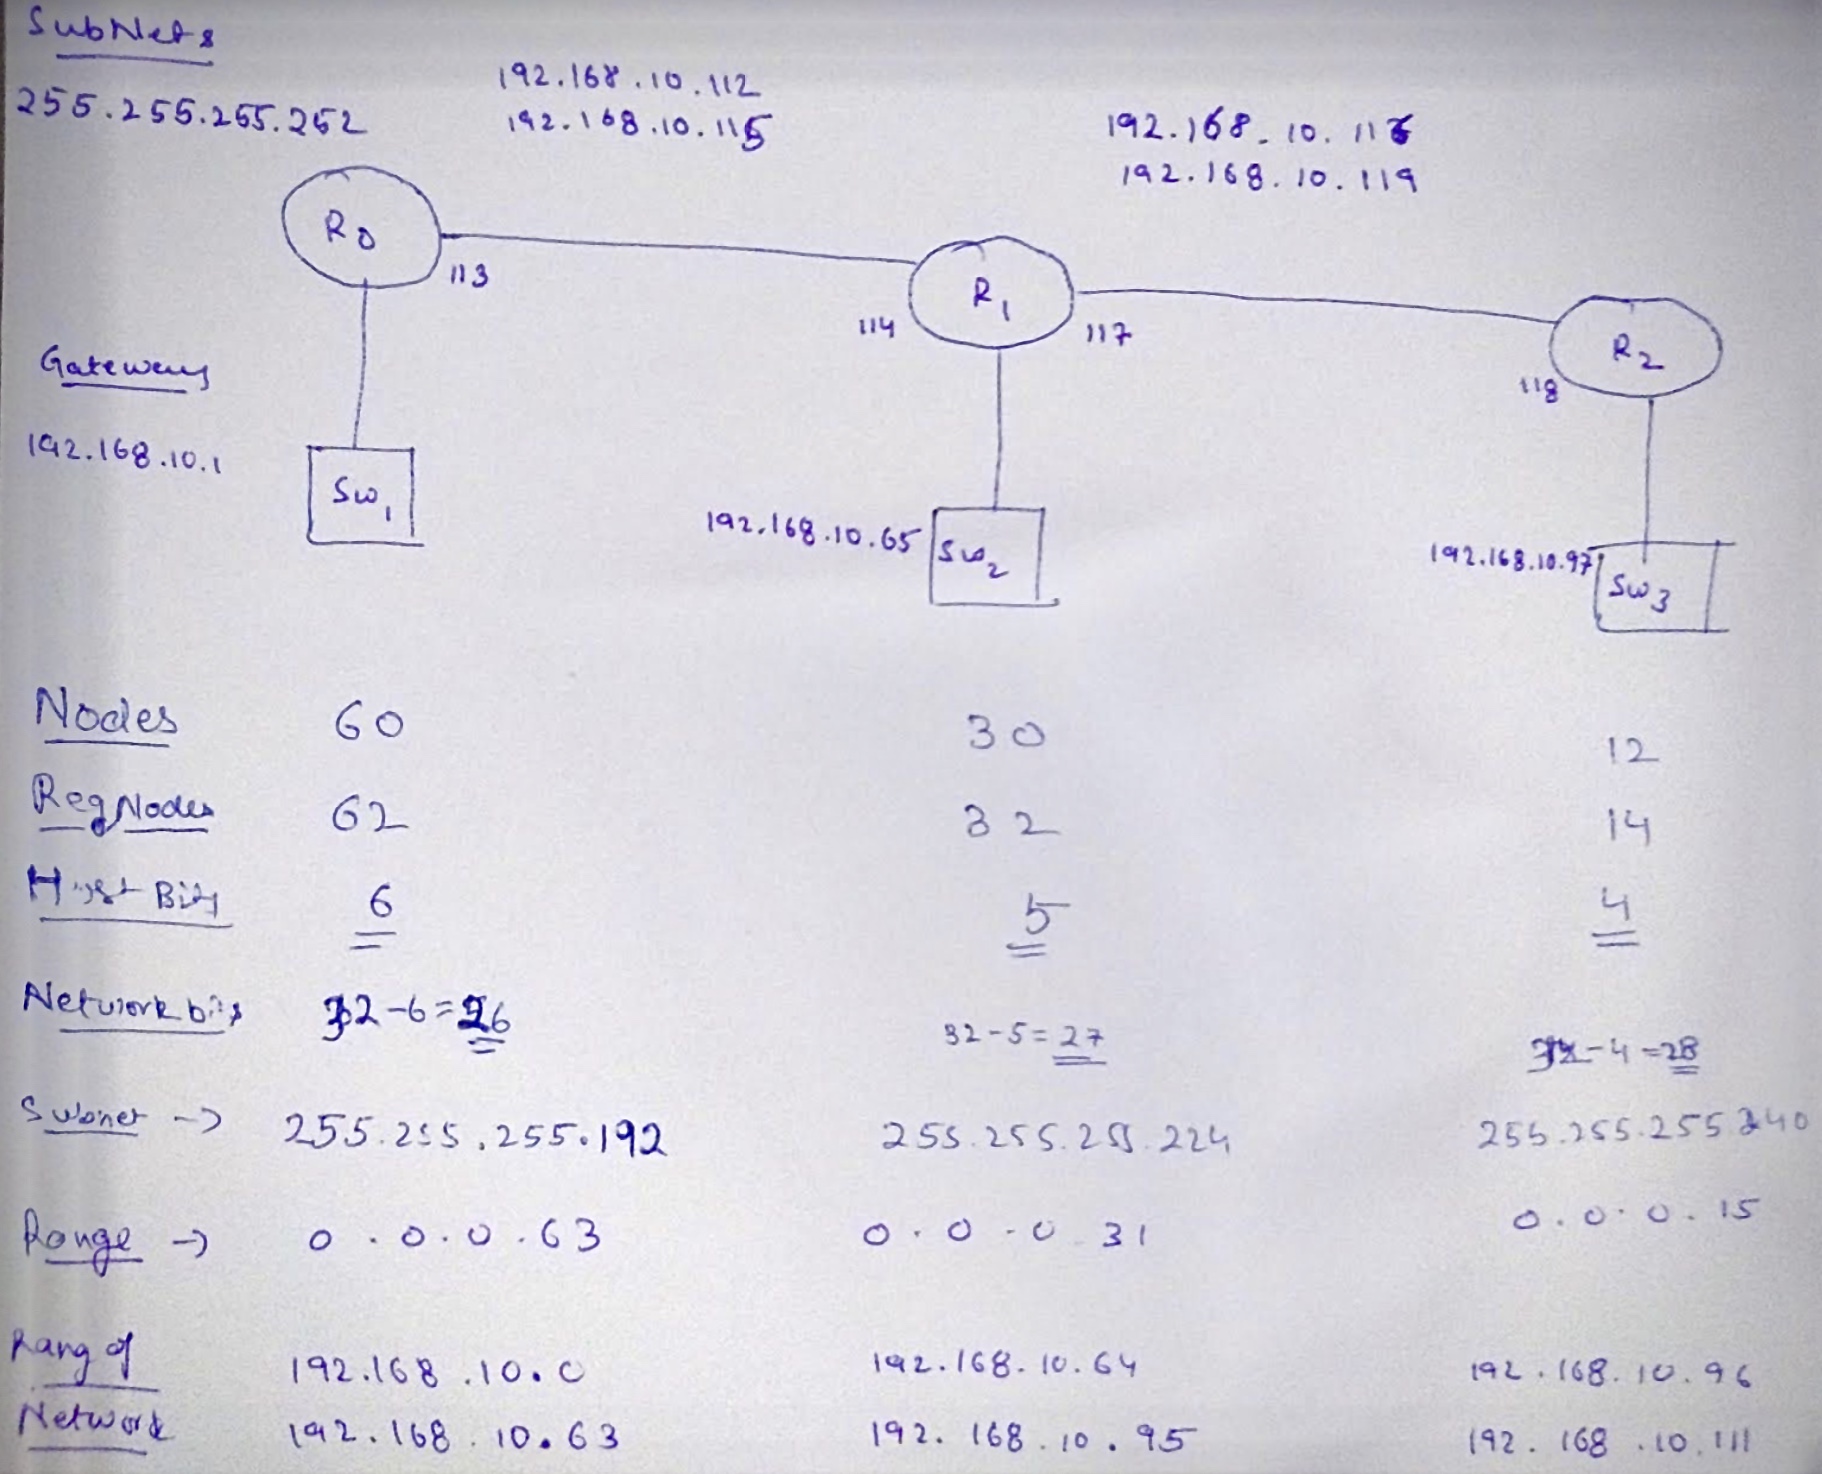 SubNets
255.255.255.252
192.168.10.112
192.168.10.115
192.168.10.116
192.168.10.119
R0
113
R1
114
117
R2
118
Gateway
192.168.10.1
Sw1
192.168.10.65
Sw2
192.168.10.97
Sw3
Nodes 60 30 12
Req Nodes 62 32 14
Host Bits 6 5 4
Network bits 32-6=26 32-5=27 32-4=28
Subnet → 255.255.255.192 255.255.255.224 255.255.255.240
Range → 0.0.0.63 0.0.0.31 0.0.0.15
Rang of 192.168.10.0 192.168.10.64 192.168.10.96
Network 192.168.10.63 192.168.10.95 192.168.10.111